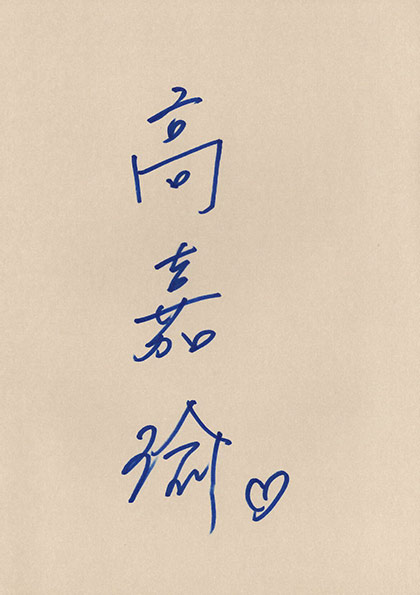 高嘉瑜